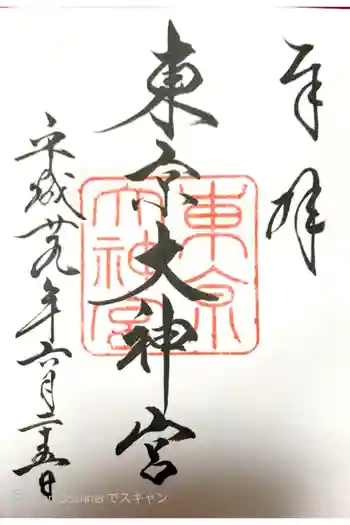 奉拝
東京大神宮
東京大神宮
平成廿九年六月二十五日
でスキャン